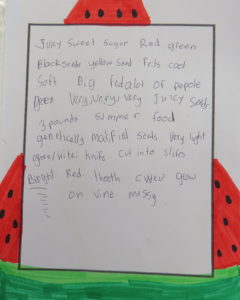 Juicy Sweet Sugar Red green
Black seeds yellow seed Feels cool
Soft Big fed a lot of pepole
Been Very, Very, Very Juicy Seeds
3 pounds summer food
genetically modified seeds Very light
knife Cut into Slifes
Bright Red. theeth chew grow
on vine messy